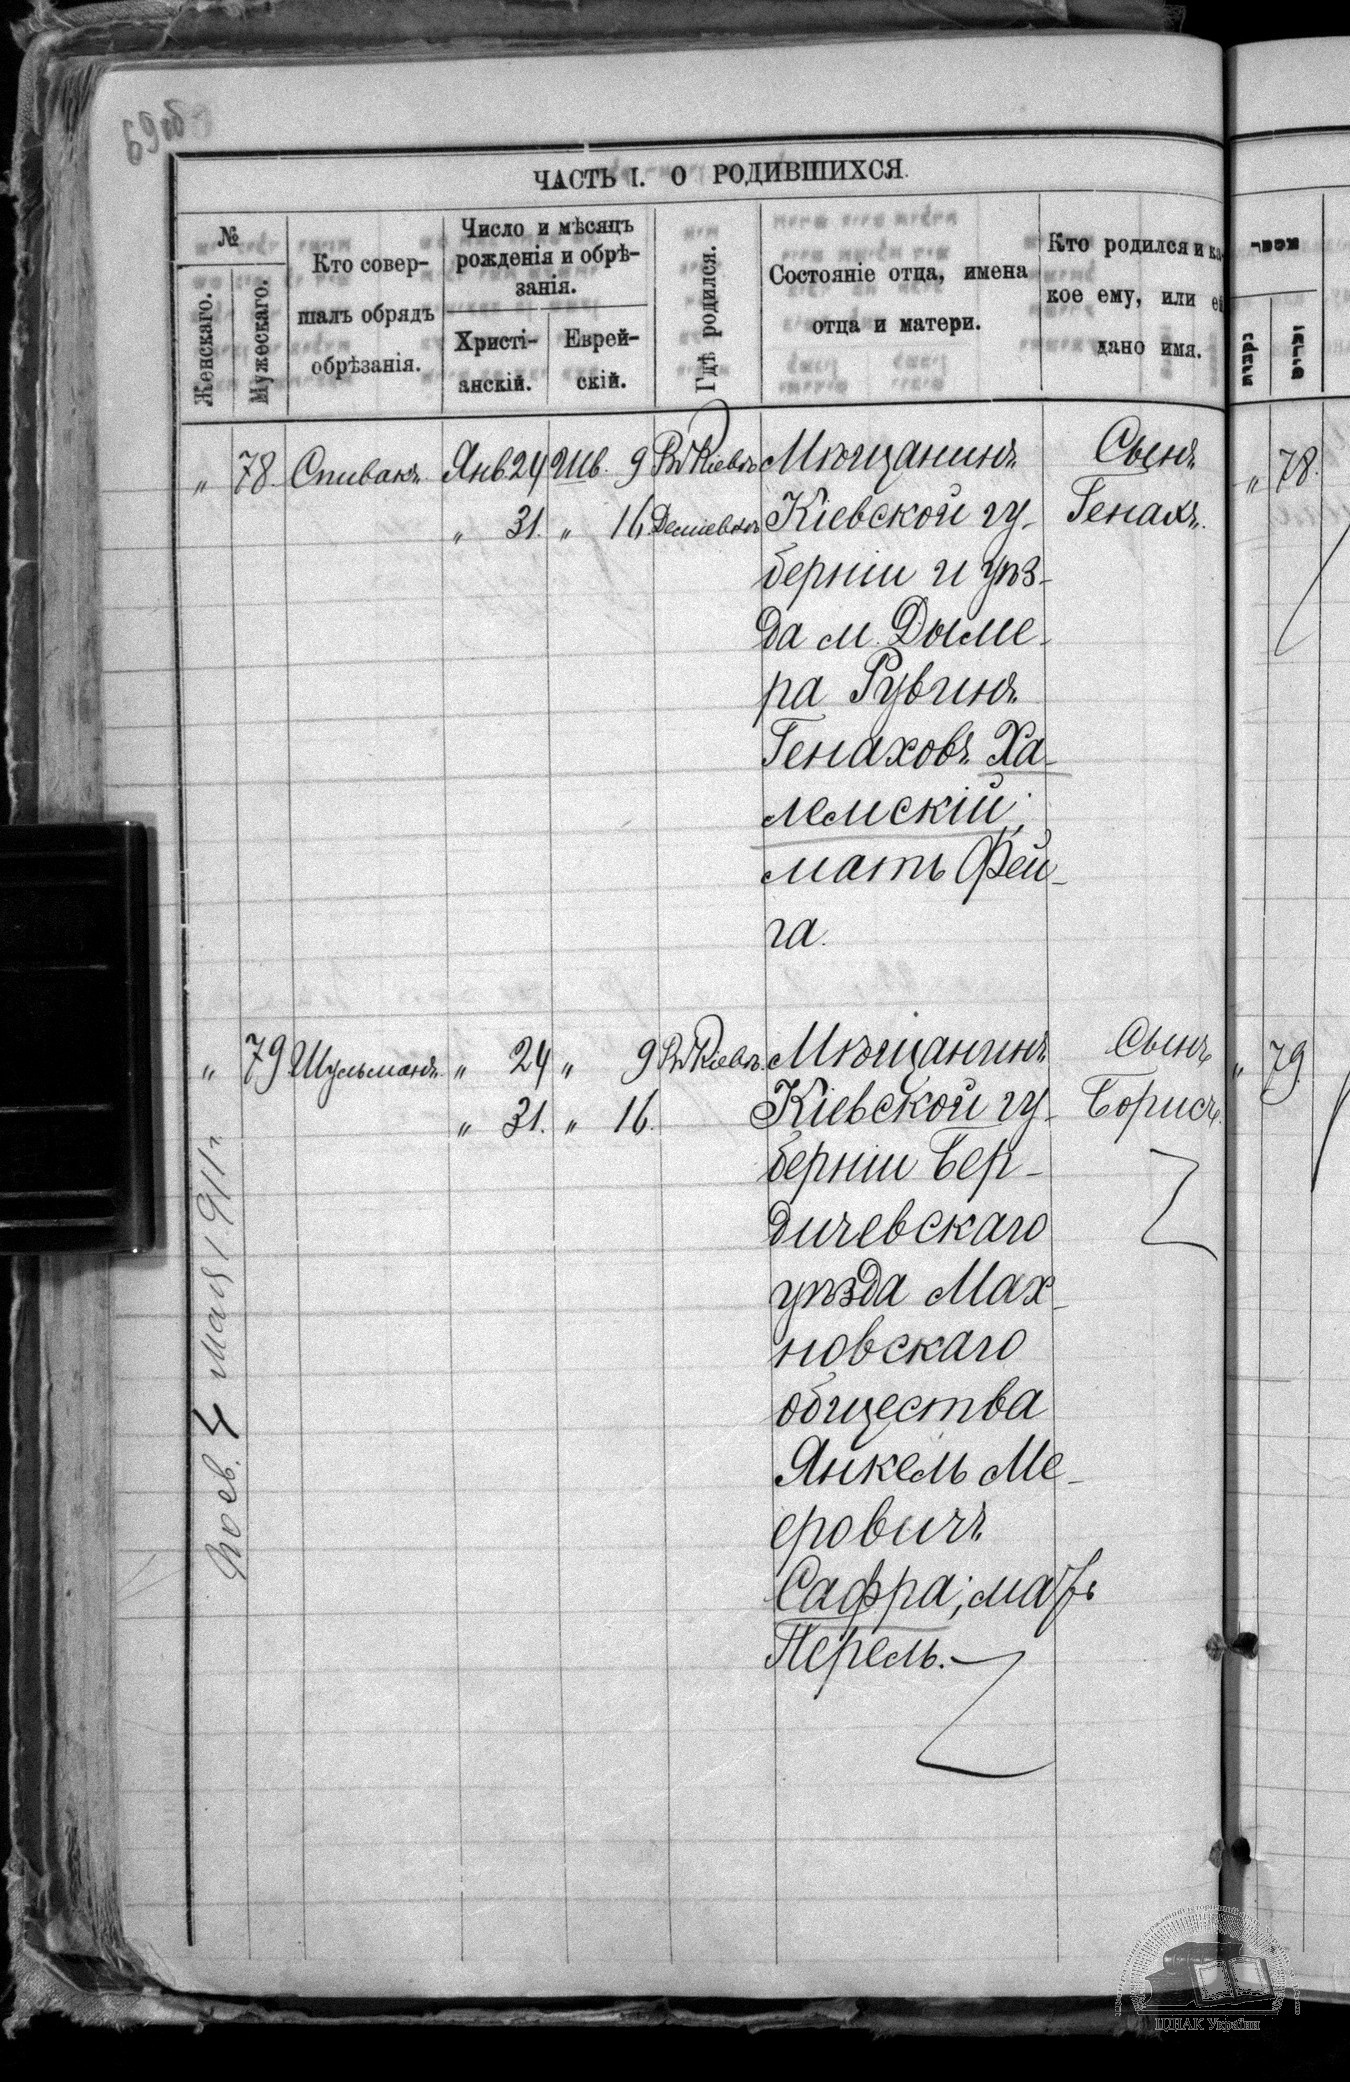 ЧАСТЬ I. О РОДИВШИХСЯ.
№
Женскаго.
Мужескаго.
Кто совер-
шалъ обрядъ
обрѣзанія.
Число и мѣсяцъ
рожденія и обрѣ-
занія.
Христі-
анскій.
Еврей-
скій.
Гдѣ родился.
Состояніе отца, имена
отца и матери.
Кто родился и ка-
кое ему, или ей
дано имя.
מספר
נקבות
זכרים
„ 78. Спивакъ. Янв. 24 Шв. 9 Въ Кіевѣ
„ 31. „ 16. Деміевкѣ
Мѣщанинъ
Кіевской гу-
берніи и уѣз-
да м. Дыме-
ра Рувинъ
Генаховъ Ха-
лемскій;
мать Фей-
га.
Сынъ
Генахъ.
„ 78.
„ 79 Шульманъ. „ 24 „ 9 Въ Кіевѣ.
„ 31. „ 16.
Мѣщанинъ
Кіевской гу-
берніи Бер-
дичевскаго
уѣзда Мах-
новскаго
общества
Янкель Ме-
еровичъ
Сафра; мать
Перель.
Сынъ
Борисъ.
„ 79.
4 мая 1911 г.
ЦДІАК України